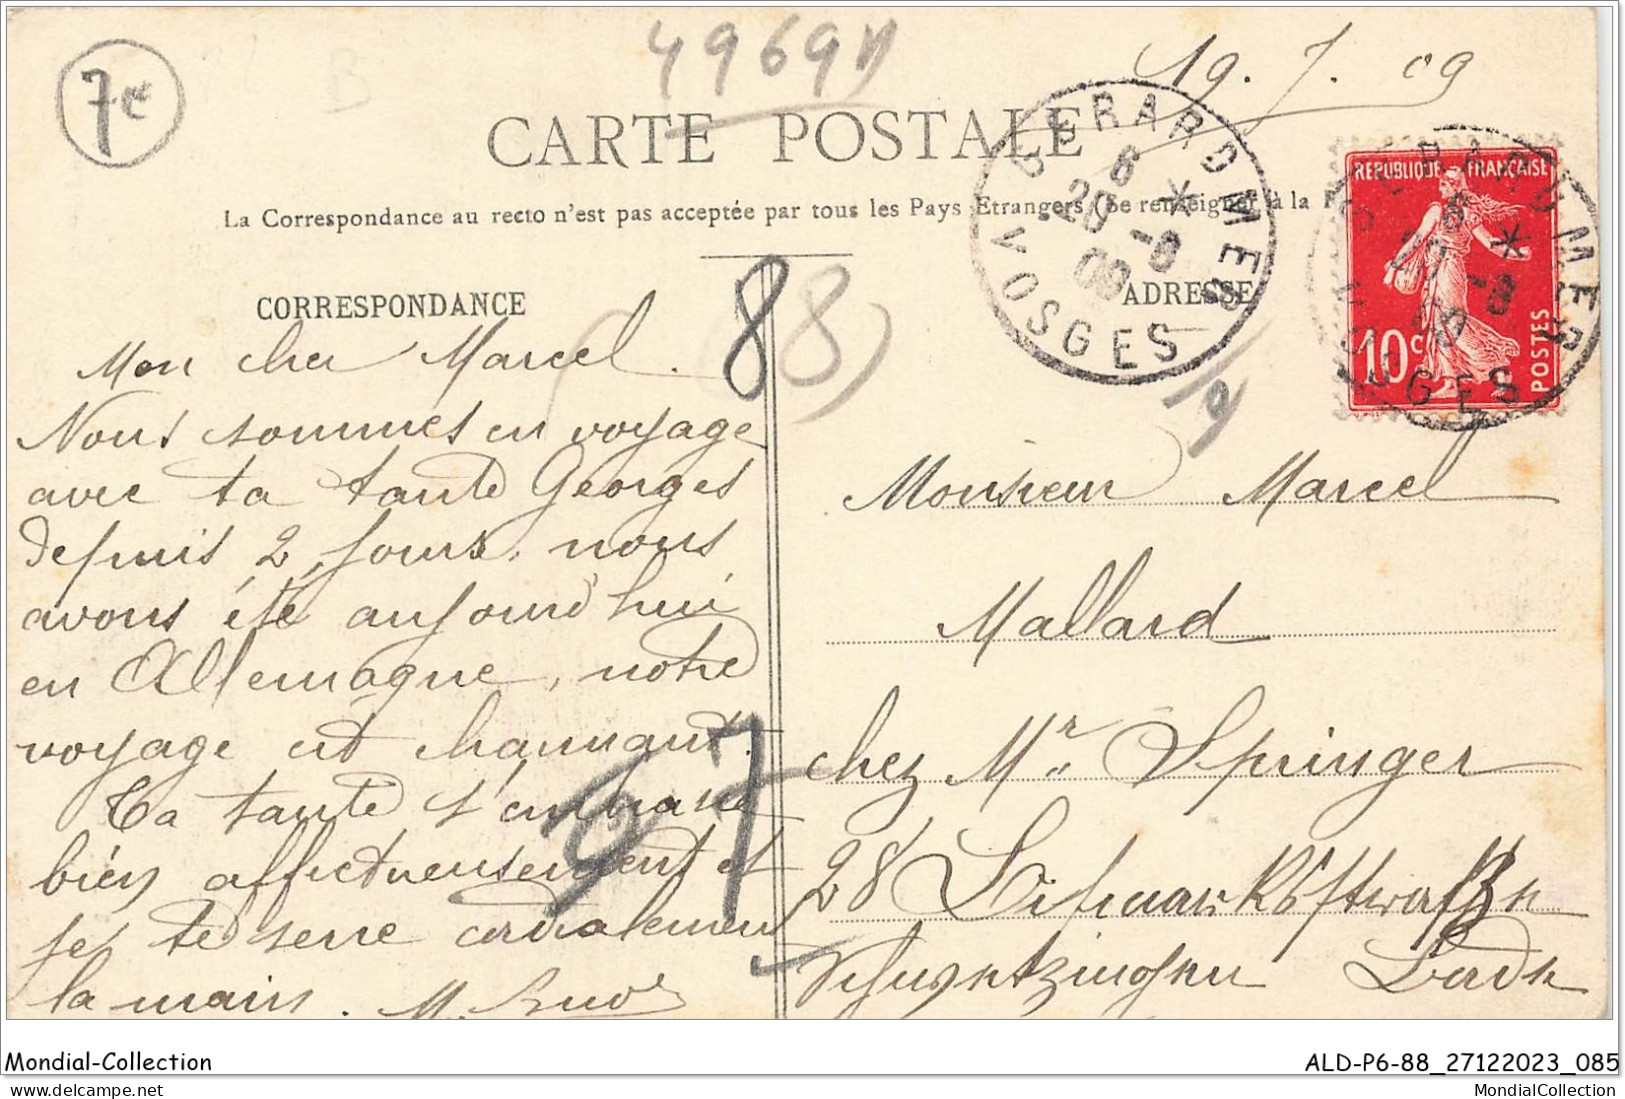 4969
19. 7. 09
7e
B
CARTE POSTALE
La Correspondance au recto n'est pas acceptée par tous les Pays Etrangers (Se renseigner à la
GERARDMER
6
20 -9
09
VOSGES
REPUBLIQUE FRANÇAISE
10c
POSTES
CORRESPONDANCE
ADRESSE
(88)
Mon cher Marcel.
Nous sommes en voyage
avec ta tante Georges
depuis 2 jours, nous
avons été aujourd'hui
en Allemagne, notre
voyage est charmant.
Ta tante t'embrasse
bien affectueusement et
je te serre cordialement
la main. M.
97
Monsieur Marcel
Mallard
chez Mr. Springer
28
Schwetzingen Baden
Mondial-Collection
ALD-P6-88_27122023_085
MondialCollection
MondialCollection